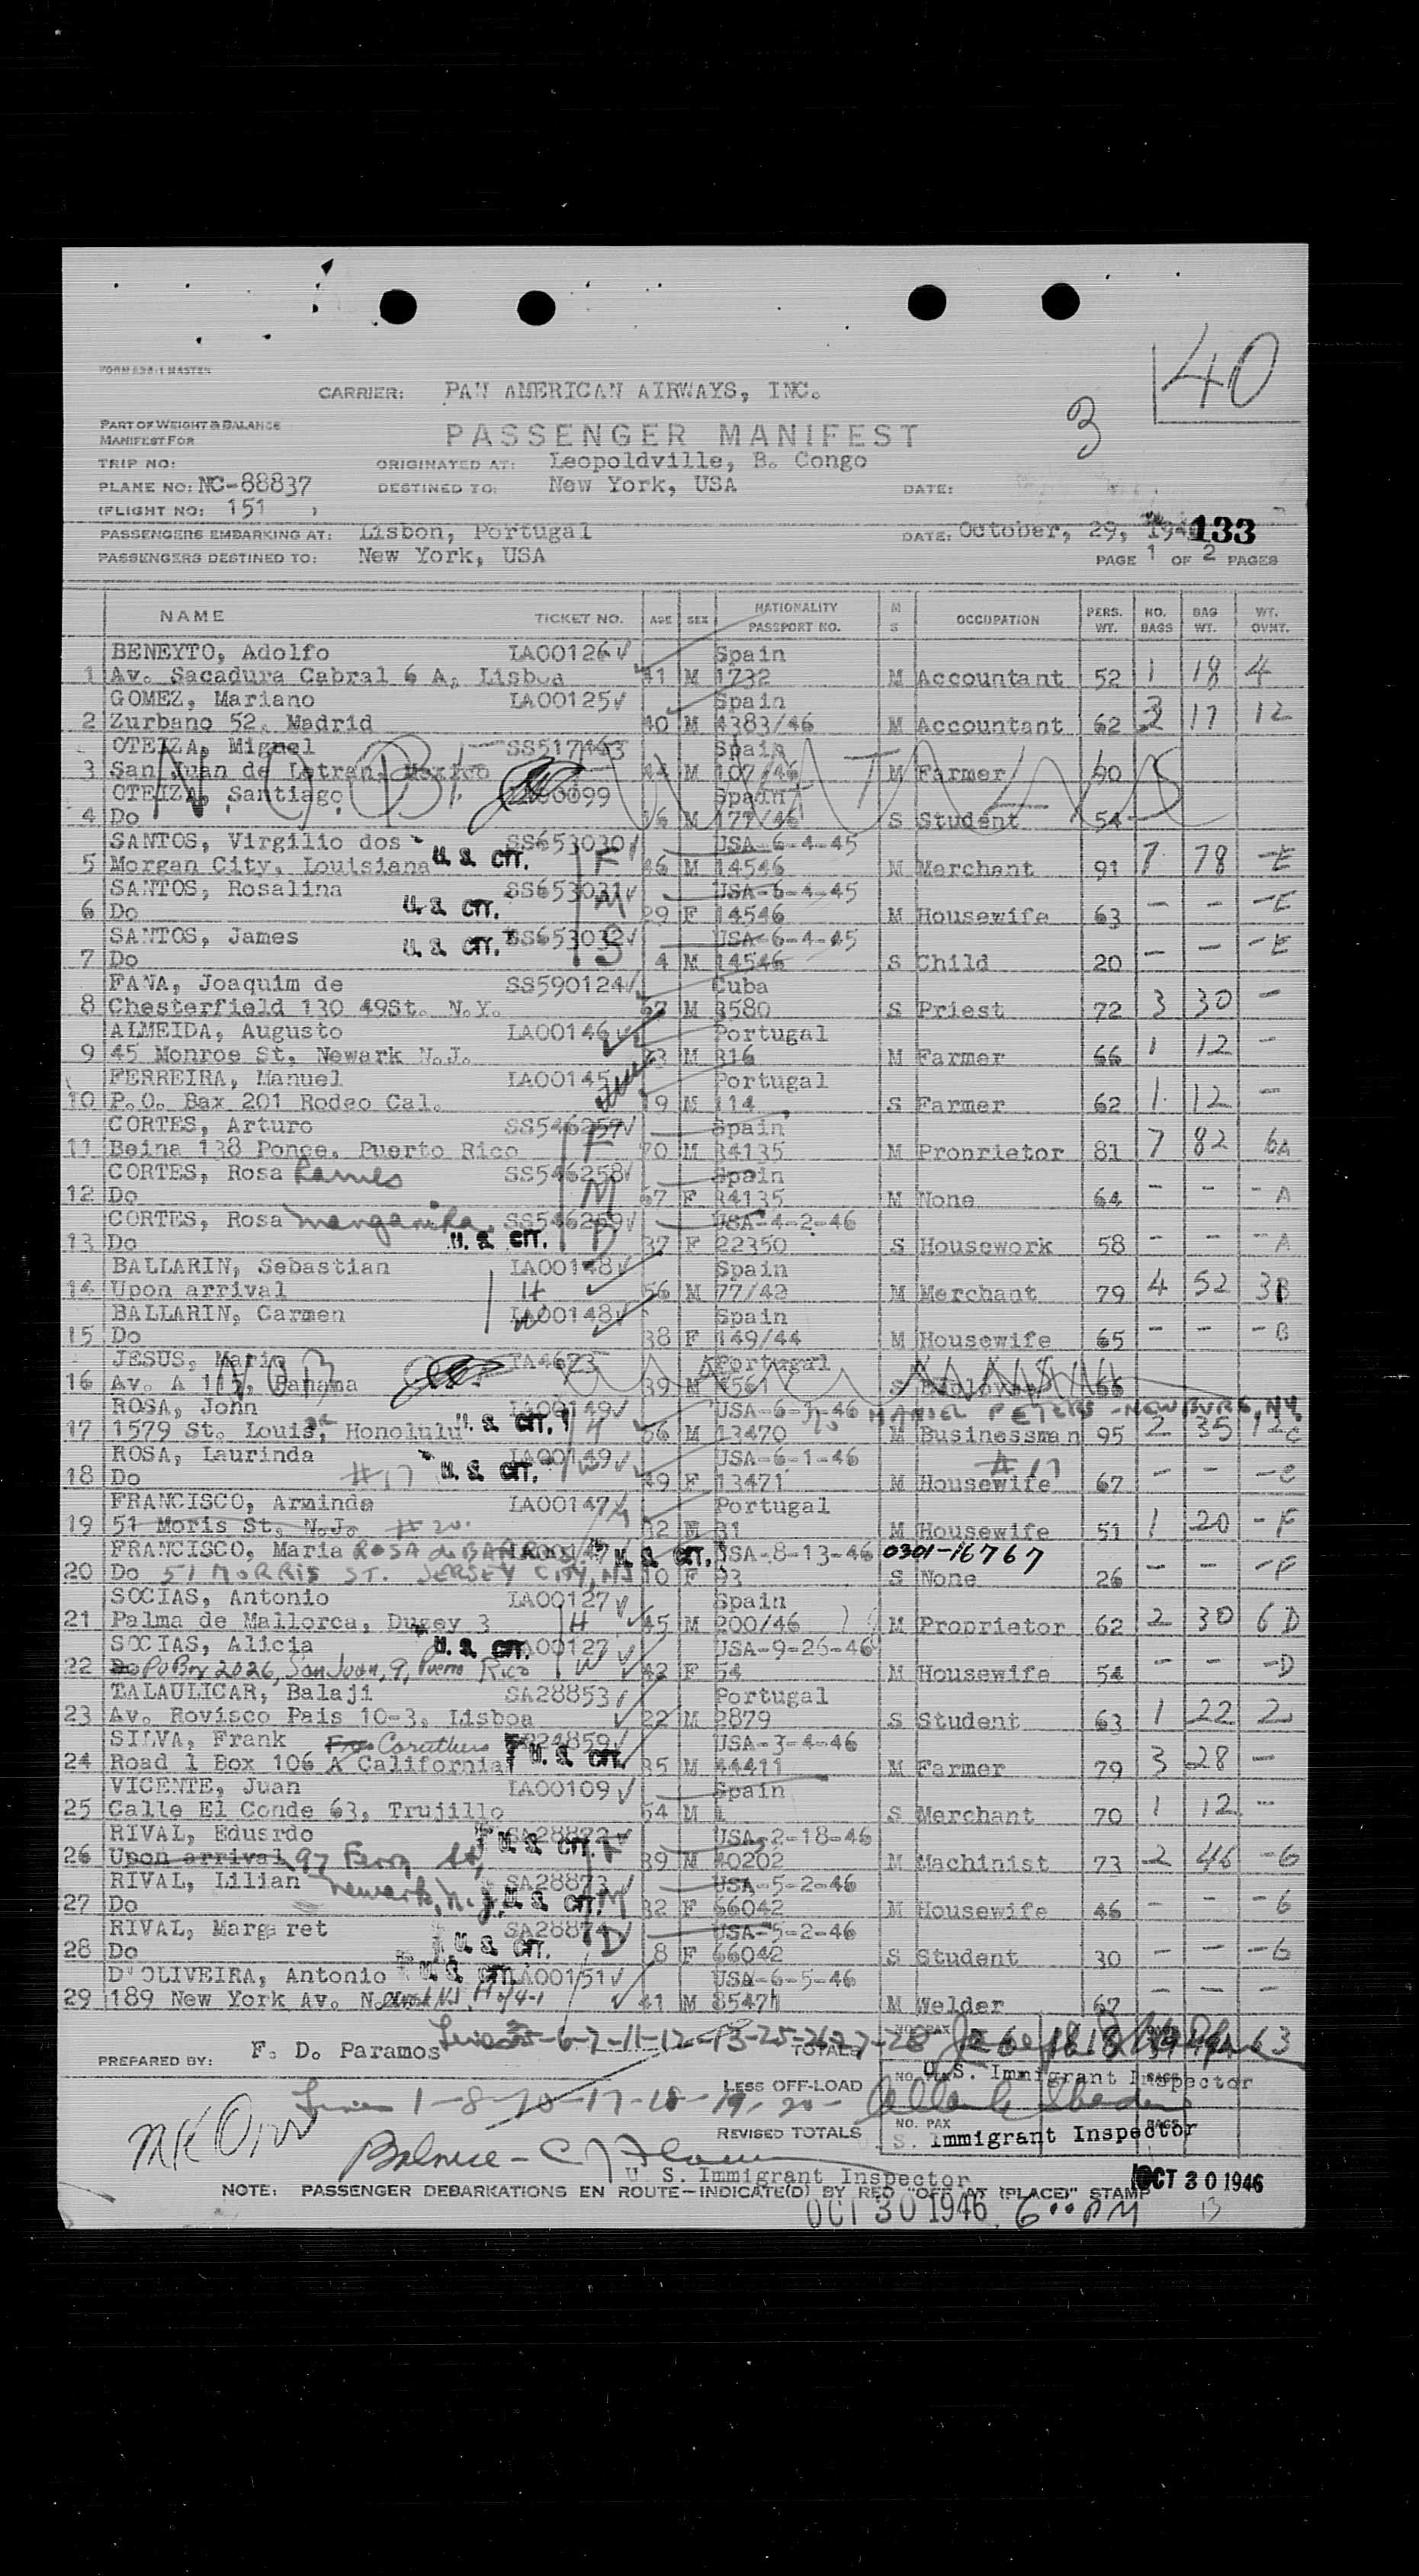 FORM 538-1 MASTER
CARRIER: PAN AMERICAN AIRWAYS, INC.
40
3
PART OF WEIGHT & BALANCE
MANIFEST FOR
PASSENGER MANIFEST
TRIP NO:
ORIGINATED AT: Leopoldville, B. Congo
PLANE NO: NC-88837
DESTINED TO: New York, USA
DATE:
(FLIGHT NO: 151 )
PASSENGERS EMBARKING AT: Lisbon, Portugal
DATE: October, 29, 194
133
PASSENGERS DESTINED TO: New York, USA
PAGE 1 OF 2 PAGES
NAME TICKET NO. AGE SEX NATIONALITY PASSPORT NO. M S OCCUPATION PERS. WT. NO. BAGS BAG WT. WT. OVHT.
BENEYTO, Adolfo LA00126 Spain
1 Av. Sacadura Cabral 6 A, Lisboa 41 M 1732 M Accountant 52 1 18 4
GOMEZ, Mariano LA00125 Spain
2 Zurbano 52, Madrid 40 M 4383/46 M Accountant 62 3 17 12
OTEIZA, Miguel SS517463 Spain
3 San Juan de Letran, Mexico M 107/46 M Farmer 90
OTEIZA, Santiago Spain
4 Do 16 M 177/46 S Student 54
SANTOS, Virgilio dos SS653030 USA-6-4-45
5 Morgan City, Louisiana U. S. CIT. F 46 M 14546 M Merchant 91 7 78 -E
SANTOS, Rosalina SS653031 USA-6-4-45
6 Do U. S. CIT. M 29 F 14546 M Housewife 63 - - -E
SANTOS, James SS653032 USA-6-4-45
7 Do U. S. CIT. S 4 M 14546 S Child 20 - - -E
FANA, Joaquim de SS590124 Cuba
8 Chesterfield 130 49St. N.Y. 67 M 3580 S Priest 72 3 30 -
ALMEIDA, Augusto LA00146 Portugal
9 45 Monroe St, Newark N.J. M 316 M Farmer 66 1 12 -
FERREIRA, Manuel LA00145 Portugal
10 P.O. Bax 201 Rodeo Cal. 19 M 114 S Farmer 62 1 12 -
CORTES, Arturo SS546257 Spain
11 Reina 138 Ponce, Puerto Rico F 70 M 34135 M Proprietor 81 7 82 6A
CORTES, Rosa SS546258 Spain
12 Do M 67 F 34135 M None 64 - - - A
CORTES, Rosa Margarita SS546259 USA-4-2-46
13 Do U. S. CIT. D 37 F 22350 S Housework 58 - - - A
BALLARIN, Sebastian LA00148 Spain
14 Upon arrival H 56 M 77/42 M Merchant 79 4 52 3B
BALLARIN, Carmen LA00148 Spain
15 Do W 38 F 149/44 M Housewife 65 - - - B
JESUS, Mario TA4623 Portugal
16 Av. A 115, Panama 39 M S 66
ROSA, John LA00149 MANUEL PETERS - NEWBURG, NY.
17 1579 St. Louis, Honolulu U. S. CIT. H 56 M 13470 M Businessman 95 2 35 12 C
ROSA, Laurinda LA00149 USA-6-1-46 #17
18 Do #17 U. S. CIT. W 49 F 13471 M Housewife 67 - - -C
FRANCISCO, Arminda LA00147 Portugal
19 51 Moris St, N.J. #20. 32 31 M Housewife 51 1 20 - F
FRANCISCO, Maria ROSA de U. S. CIT. USA-8-13-46 0301-16767
20 Do 51 MORRIS ST. JERSEY CITY, NJ 10 F 93 S None 26 - - -F
SOCIAS, Antonio LA00127 Spain
21 Palma de Mallorca, Dusey 3 H 45 M 200/46 M Proprietor 62 2 30 6 D
SOCIAS, Alicia U. S. CIT. LA00127 USA-9-26-46
22 Do PO Box 2026, San Juan, 9, Puerto Rico W 42 F 54 M Housewife 54 - - -D
TALAULICAR, Balaji SA28853 Portugal
23 Av. Rovisco Pais 10-3, Lisboa 22 M 2879 S Student 63 1 22 2
SILVA, Frank Caruthers 24859 USA-3-4-46
24 Road 1 Box 106 X California U. S. CIT. 35 M 44411 M Farmer 79 3 28 -
VICENTE, Juan LA00109 Spain
25 Calle El Conde 63, Trujillo 54 M 1 S Merchant 70 1 12 -
RIVAL, Eduardo SA28872 U. S. CIT. USA-2-18-46
26 Upon arrival 97 Ferry St, F 39 M 40202 M Machinist 73 2 46 -G
RIVAL, Lilian Newark, N.J. SA28873 USA-5-2-46
27 Do U. S. CIT. M 32 F 66042 M Housewife 46 - - G
RIVAL, Margaret SA28874 USA-5-2-46
28 Do U. S. CIT. D 8 F 66042 S Student 30 - - -G
D'OLIVEIRA, Antonio U. S. CIT. LA00151 USA-6-5-46
29 189 New York Av. Newark NJ. 41 M 8547 M Welder 67 - - -
Lines 5-6-7-11-12-13-25-26-27-28
PREPARED BY: F. D. Paramos
TOTALS NO. PAX 63
U. S. Immigrant Inspector
LESS OFF-LOAD
Lines 1-8-10-17-18-19-20-
REVISED TOTALS NO. PAX BAGS
U. S. Immigrant Inspector
Balance -
U. S. Immigrant Inspector
OCT 30 1946
NOTE: PASSENGER DEBARKATIONS EN ROUTE-INDICATE(D) BY RED "OFF AT (PLACE)" STAMP
OCT 30 1946 6 00 PM
13